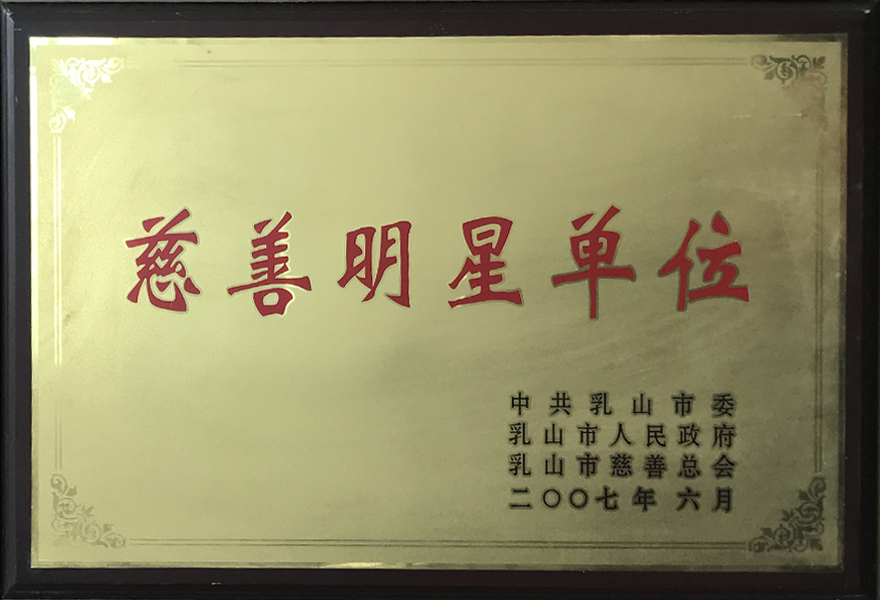 慈善明星单位
中共乳山市委
乳山市人民政府
乳山市慈善总会
二〇〇七年六月